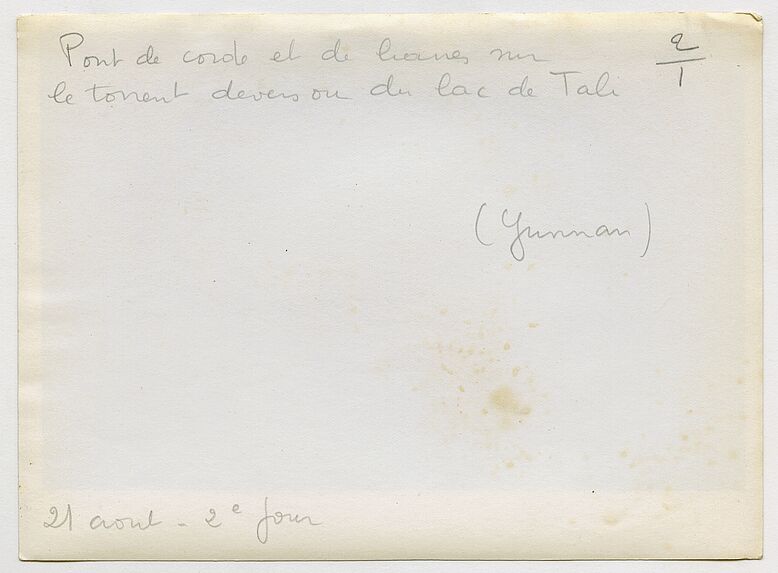 Pont de corde et de lianes sur
le torrent deversoir du lac de Tali
2
1
(Yunnan)
21 aout - 2e jour